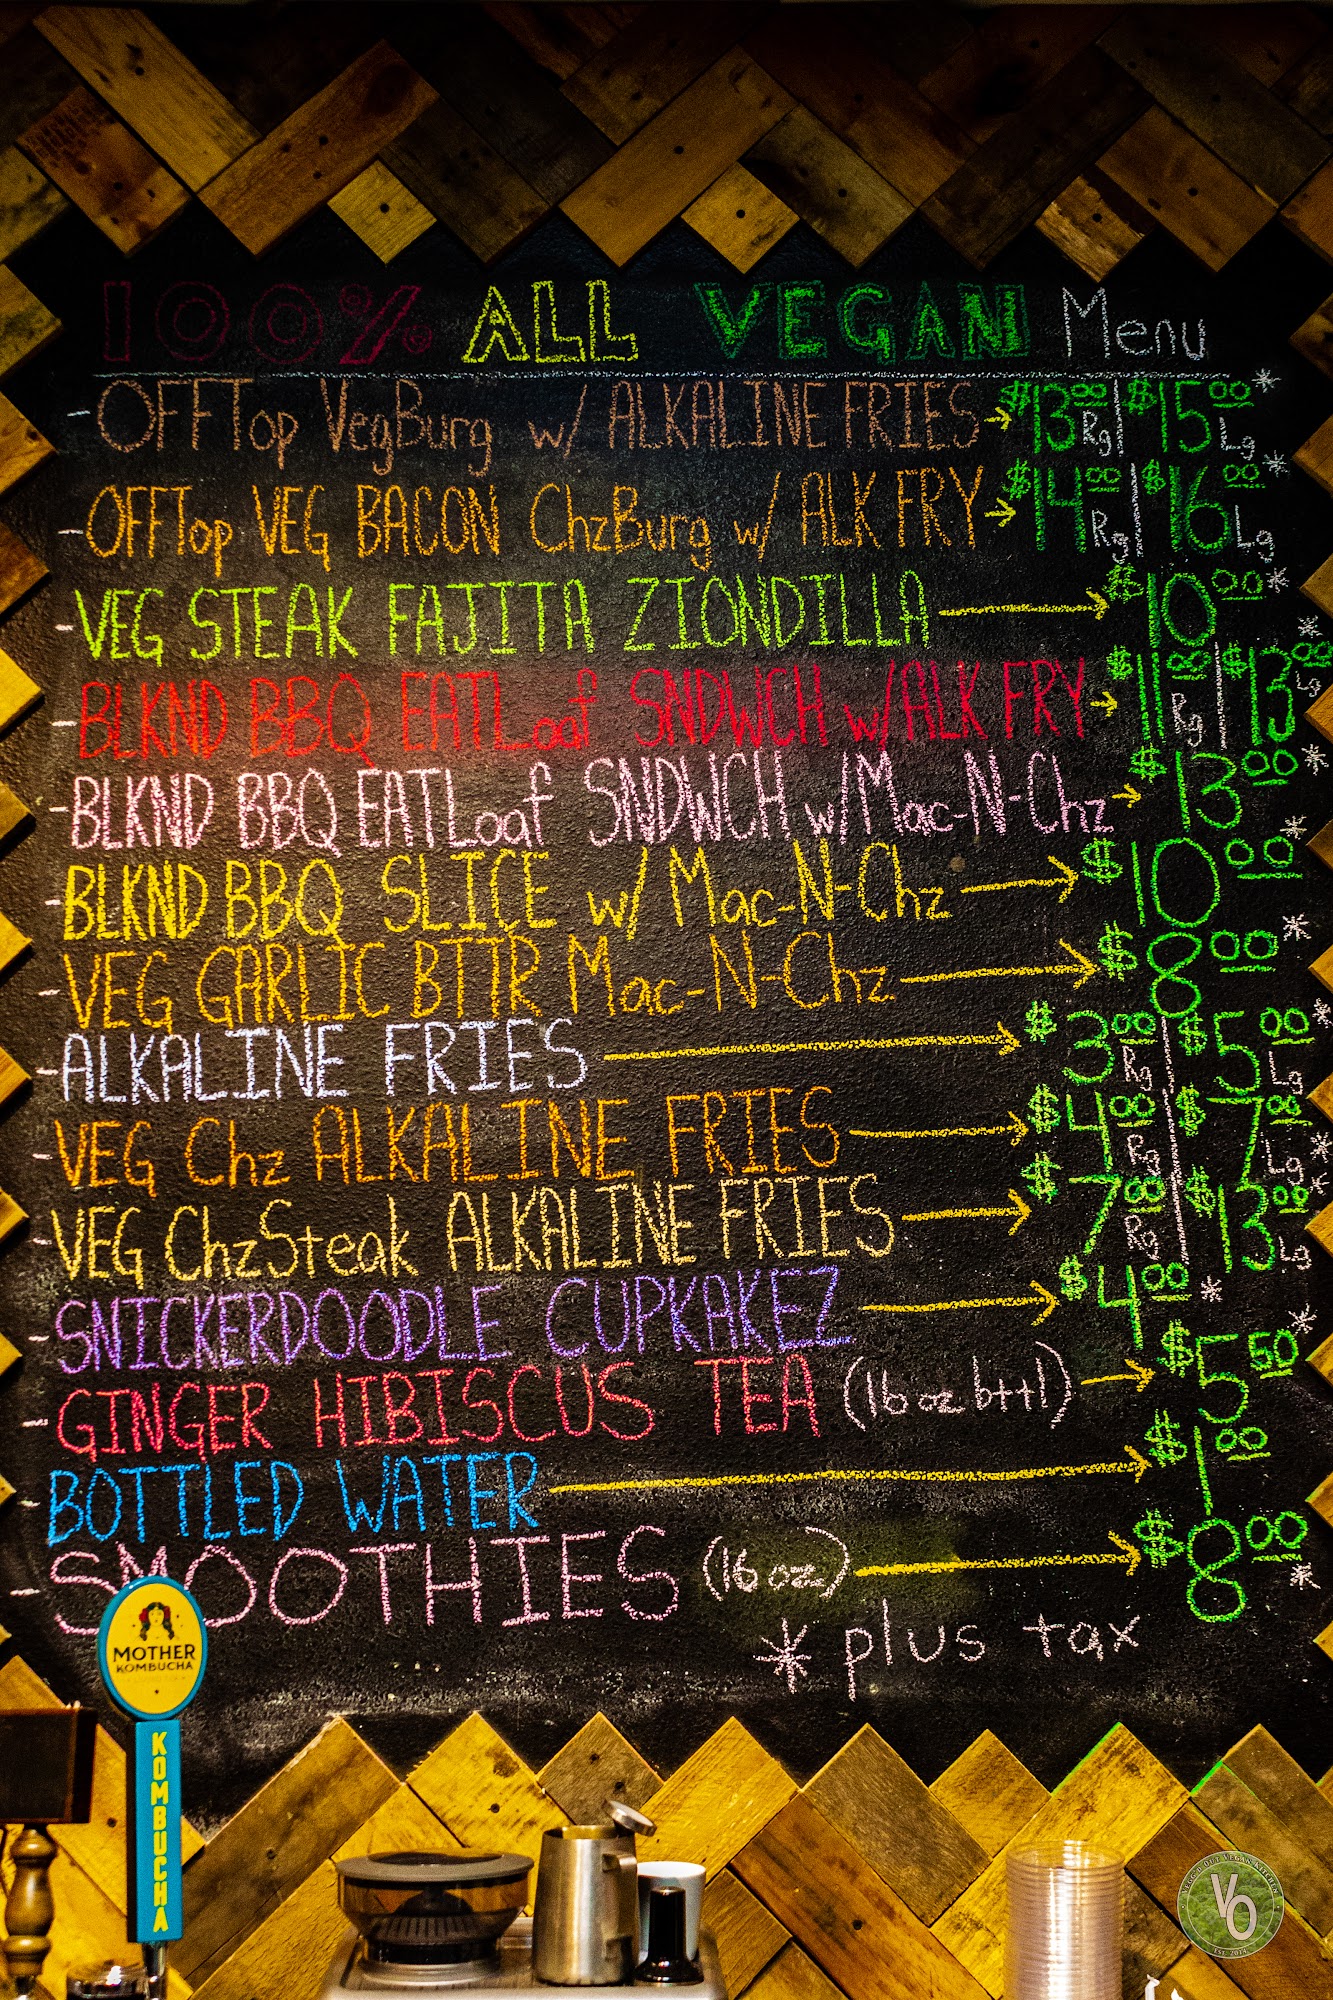 100% ALL VEGAN Menu
-OFFTop VegBurg w/ ALKALINE FRIES → $13.00 Rg | $15.00 Lg *
-OFFTop VEG BACON ChzBurg w/ ALK FRY → $14.00 Rg | $16.00 Lg *
-VEG STEAK FAJITA ZIONDILLA → $10.00 *
-BLKND BBQ EATLoaf SNDWCH w/ALK FRY → $11.00 Rg | $13.00 Lg *
-BLKND BBQ EATLoaf SNDWCH w/Mac-N-Chz → $13.00 *
-BLKND BBQ SLICE w/ Mac-N-Chz → $10.00 *
-VEG GARLIC BTTR Mac-N-Chz → $8.00 *
-ALKALINE FRIES → $3.00 Rg | $5.00 Lg *
-VEG Chz ALKALINE FRIES → $4.00 Rg | $7.00 Lg *
-VEG ChzSteak ALKALINE FRIES → $7.00 Rg | $13.00 Lg *
-SNICKERDOODLE CUPKAKEZ → $4.00 *
-GINGER HIBISCUS TEA (16 oz bttl) → $5.50 *
-BOTTLED WATER → $1.00
-SMOOTHIES (16 oz.) → $8.00 *
* plus tax
MOTHER
KOMBUCHA
KOMBUCHA
VO
EST. 2014